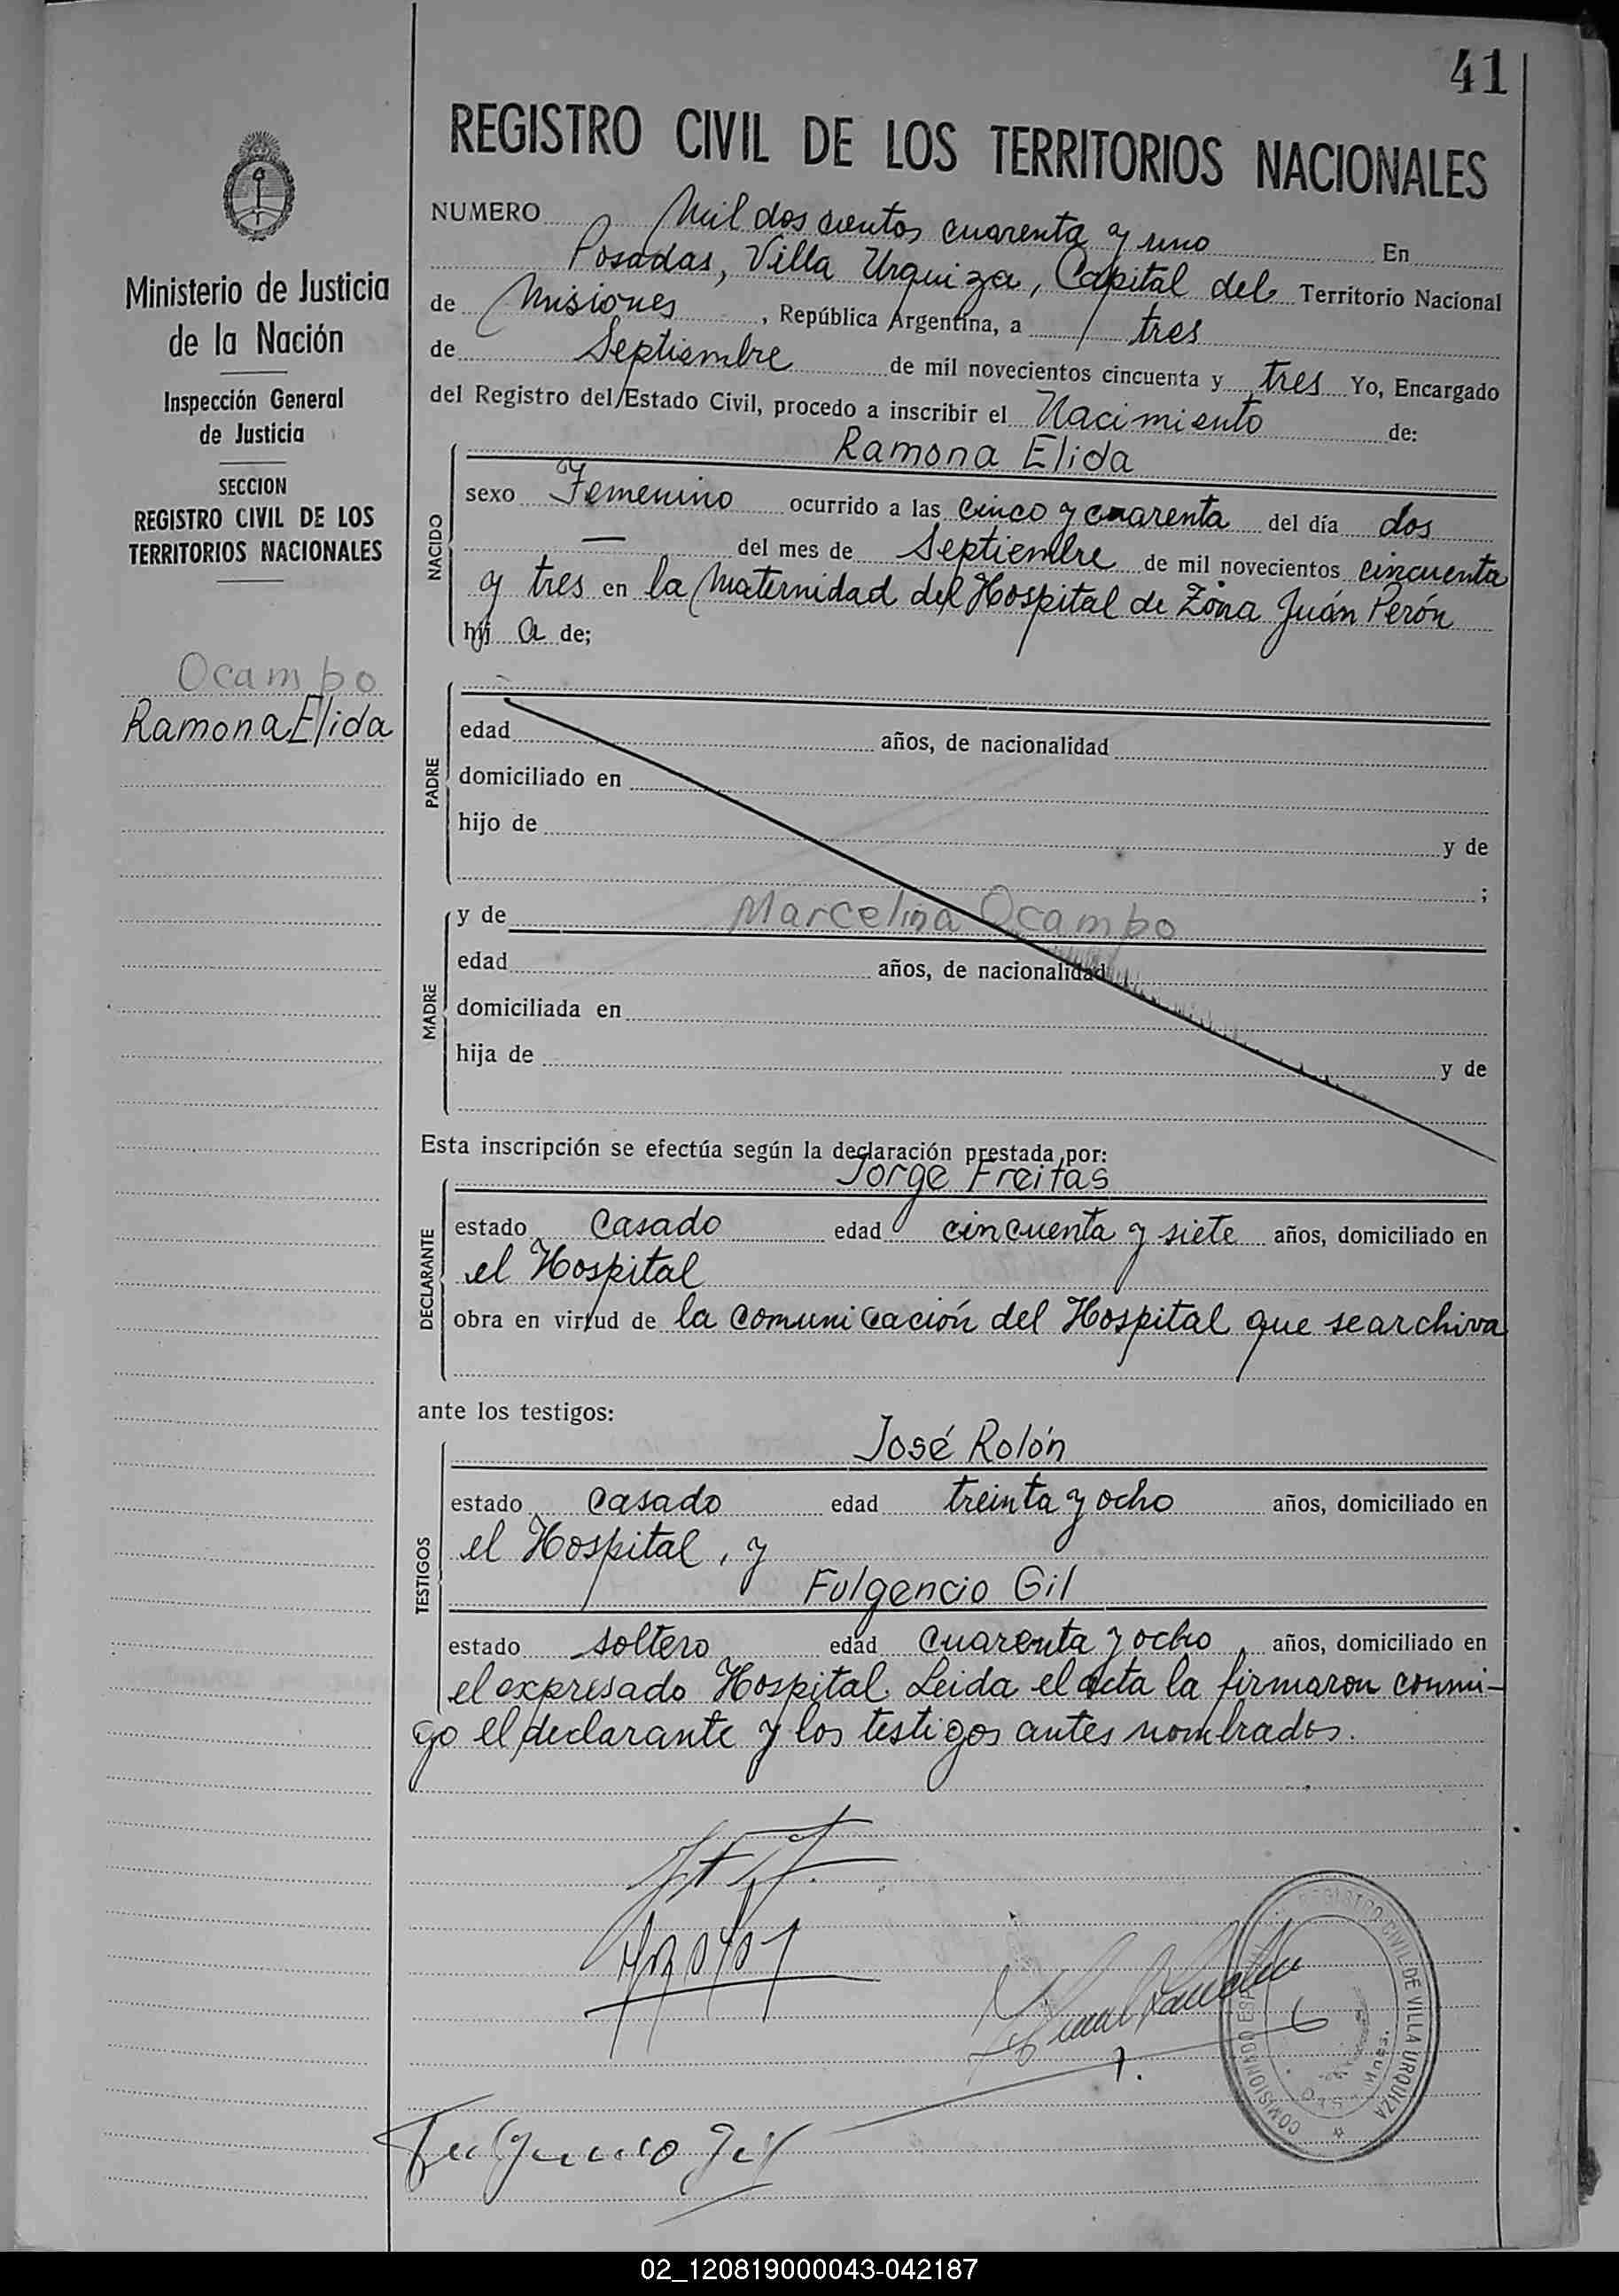 41
REGISTRO CIVIL DE LOS TERRITORIOS NACIONALES
Ministerio de Justicia
de la Nación
Inspección General
de Justicia
SECCION
REGISTRO CIVIL DE LOS
TERRITORIOS NACIONALES
Ocampo
Ramona Elida
NUMERO Mil dos cientos cuarenta y uno En
Posadas, Villa Urquiza, Capital del Territorio Nacional
de Misiones, República Argentina, a tres
de Septiembre de mil novecientos cincuenta y tres Yo, Encargado
del Registro del Estado Civil, procedo a inscribir el Nacimiento de:
Ramona Elida
NACIDO
sexo Femenino ocurrido a las cinco y cuarenta del día dos
— del mes de Septiembre de mil novecientos cincuenta
y tres en la Maternidad del Hospital de Zona Juán Perón
hij a de;
PADRE
edad años, de nacionalidad
domiciliado en
hijo de y de
;
MADRE
y de Marcelina Ocampo
edad años, de nacionalidad
domiciliada en
hija de y de
Esta inscripción se efectúa según la declaración prestada por:
Jorge Freitas
DECLARANTE
estado casado edad cincuenta y siete años, domiciliado en
el Hospital
obra en virtud de la comunicación del Hospital que se archiva
ante los testigos:
José Rolón
TESTIGOS
estado casado edad treinta y ocho años, domiciliado en
el Hospital, y
Fulgencio Gil
estado soltero edad cuarenta y ocho, años, domiciliado en
el expresado Hospital. Leida el acta la firmaron conmi-
go el declarante y los testigos antes nombrados.
REGISTRO CIVIL DE VILLA URQUIZA
COMISIONADO
Fulgencio Gil
02_120819000043-042187